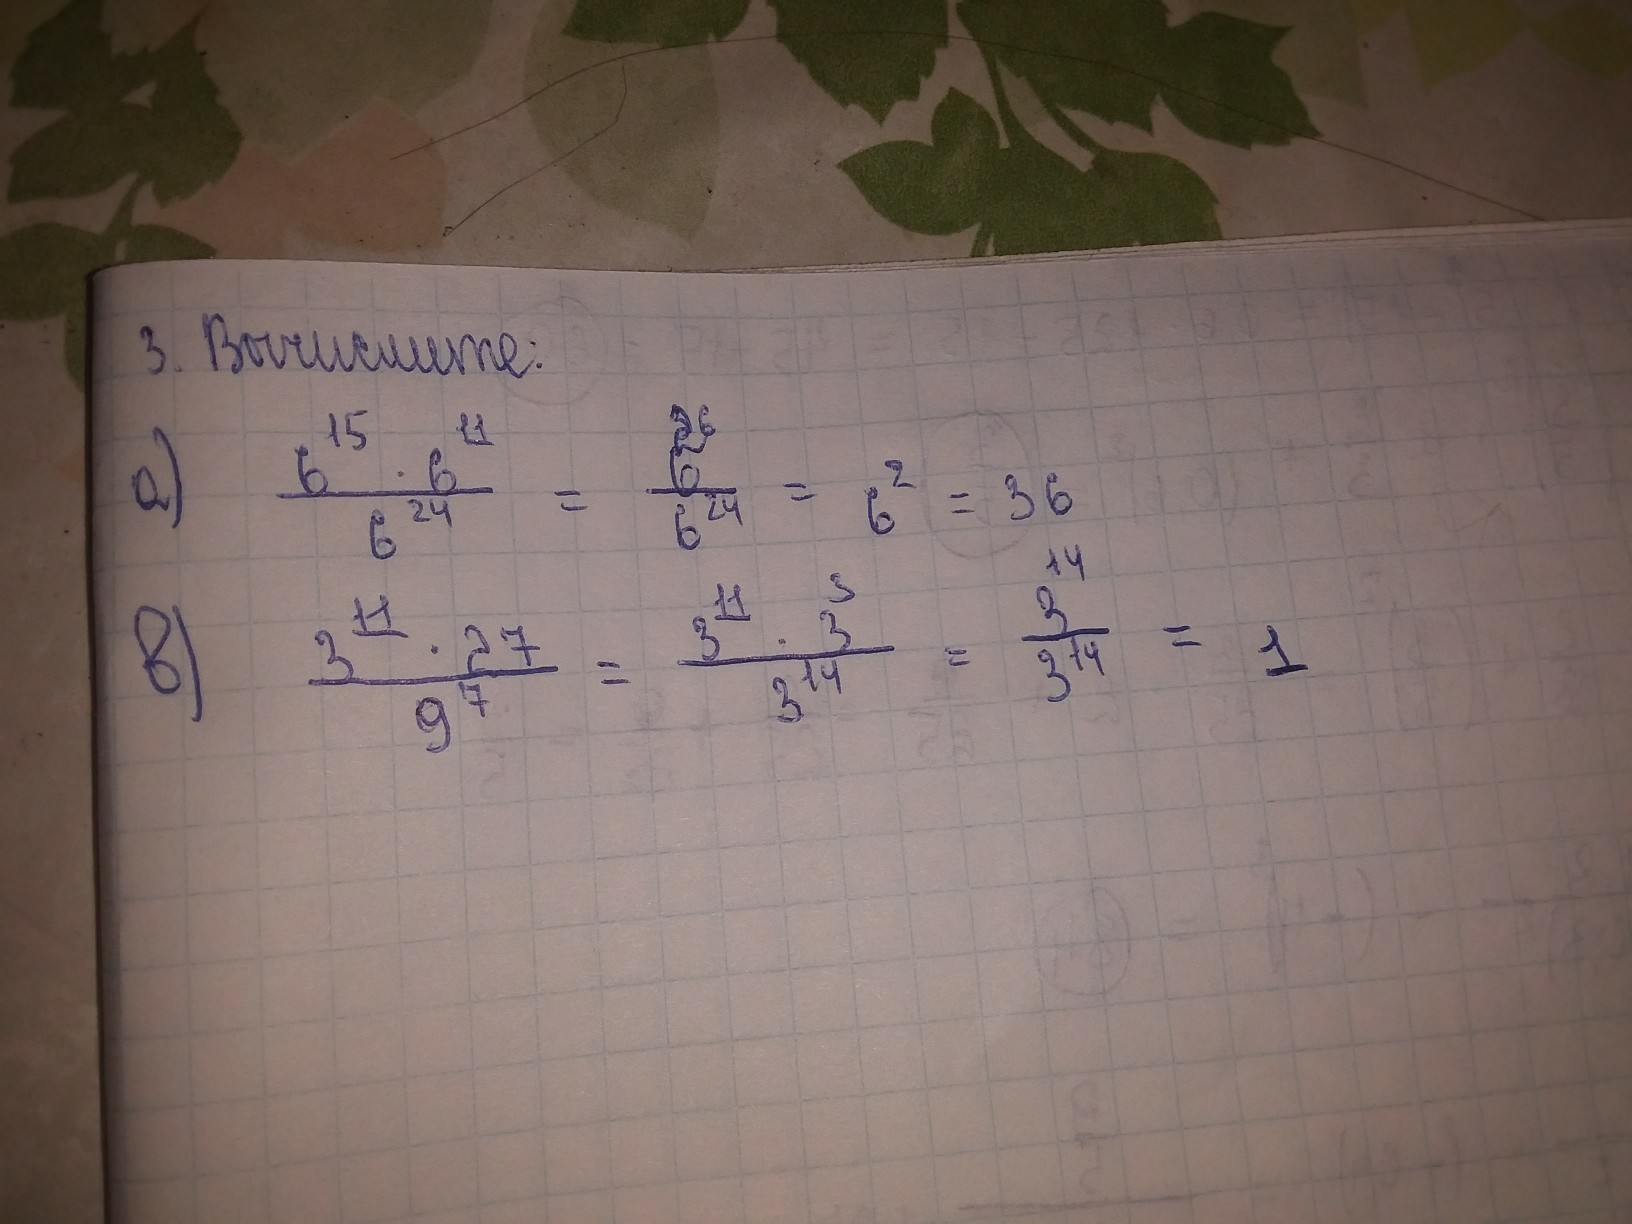 3. Вычислите:
а) (6^15 · 6^11) / 6^24 = 6^26 / 6^24 = 6^2 = 36
в) (3^11 · 27) / 9^7 = (3^11 · 3^3) / 3^14 = 3^14 / 3^14 = 1